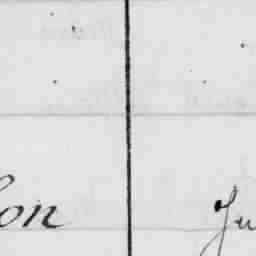 on Ju